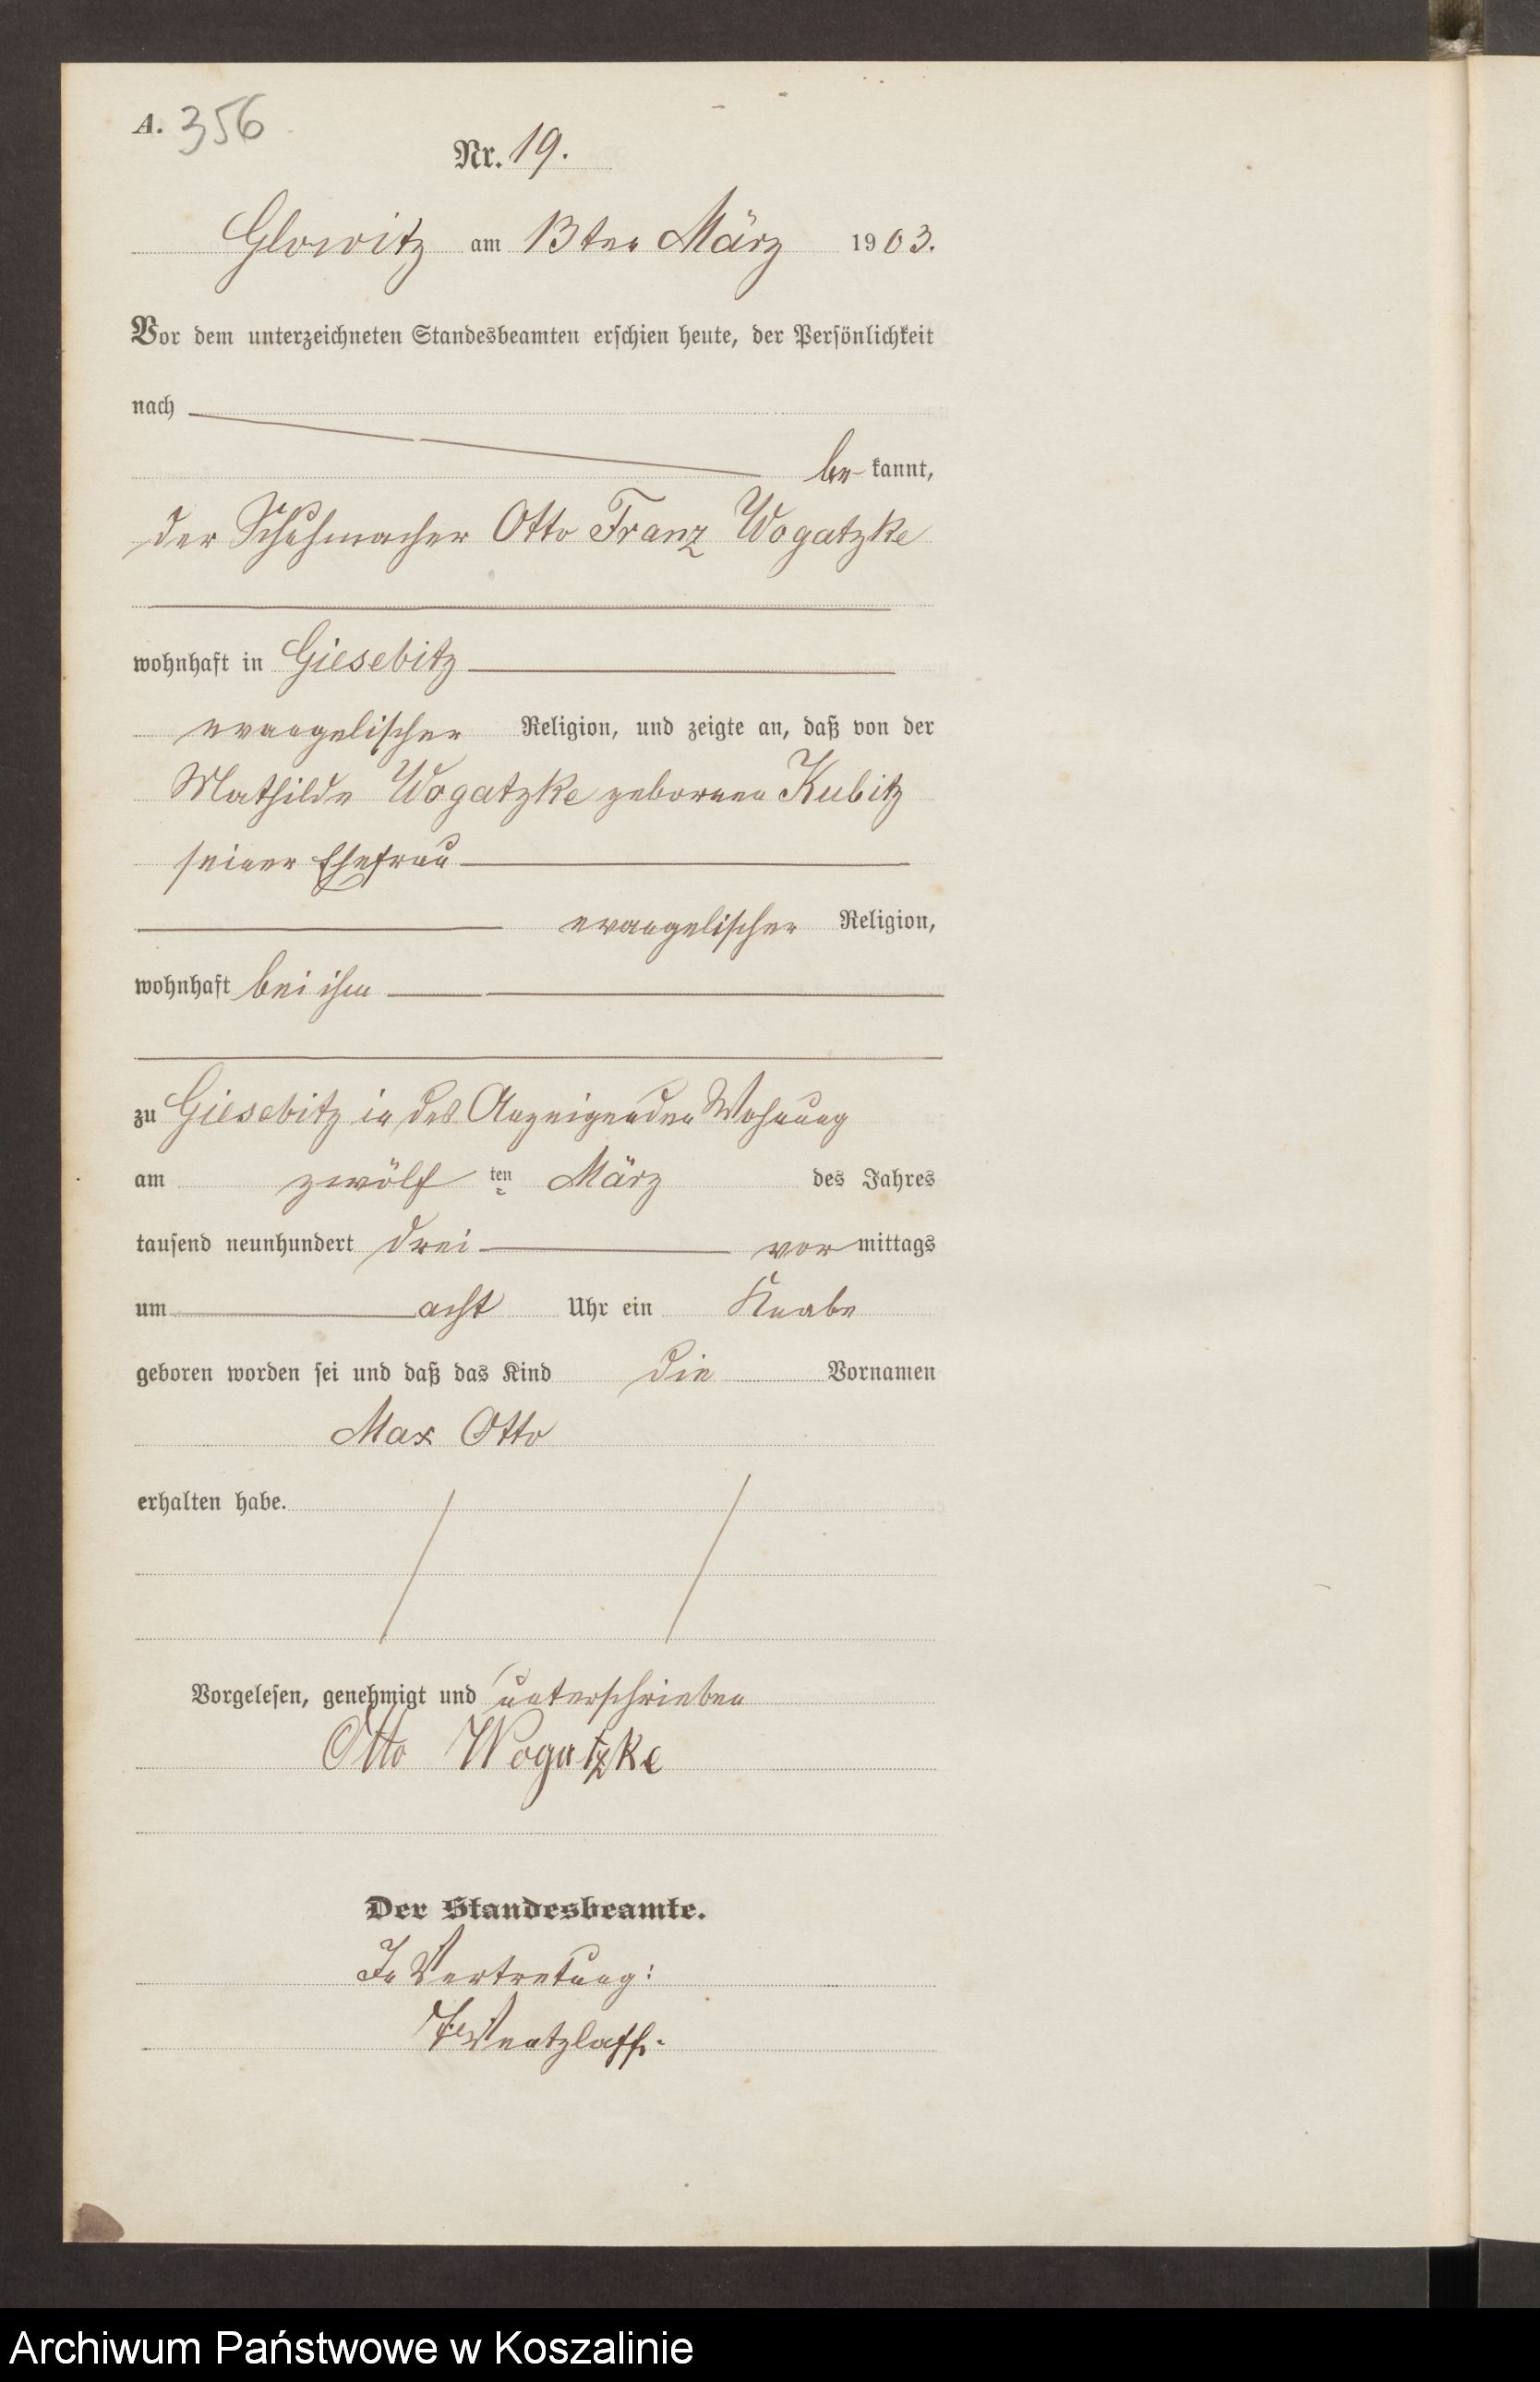 A. 356
Nr. 19.
Glowitz am 13ten März 1903.
Vor dem unterzeichneten Standesbeamten erschien heute, der Persönlichkeit
nach
be kannt,
der Schuhmacher Otto Franz Wogatzke
wohnhaft in Giesebitz
evangelischer Religion, und zeigte an, daß von der
Mathilde Wogatzke geborenen Kubitz
seiner Ehefrau
evangelischer Religion,
wohnhaft bei ihm
zu Giesebitz in des Anzeigenden Wohnung
am zwölf ten März des Jahres
tausend neunhundert drei vor mittags
um acht Uhr ein Knabe
geboren worden sei und daß das Kind die Vornamen
Max Otto
erhalten habe.
Vorgelesen, genehmigt und unterschrieben
Otto Wogatzke
Der Standesbeamte.
In Vertretung:
Wentzlaff.
Archiwum Państwowe w Koszalinie